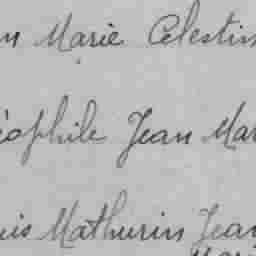 n Marie Célestin
éophile Jean Mar
uis Mathurin Jean